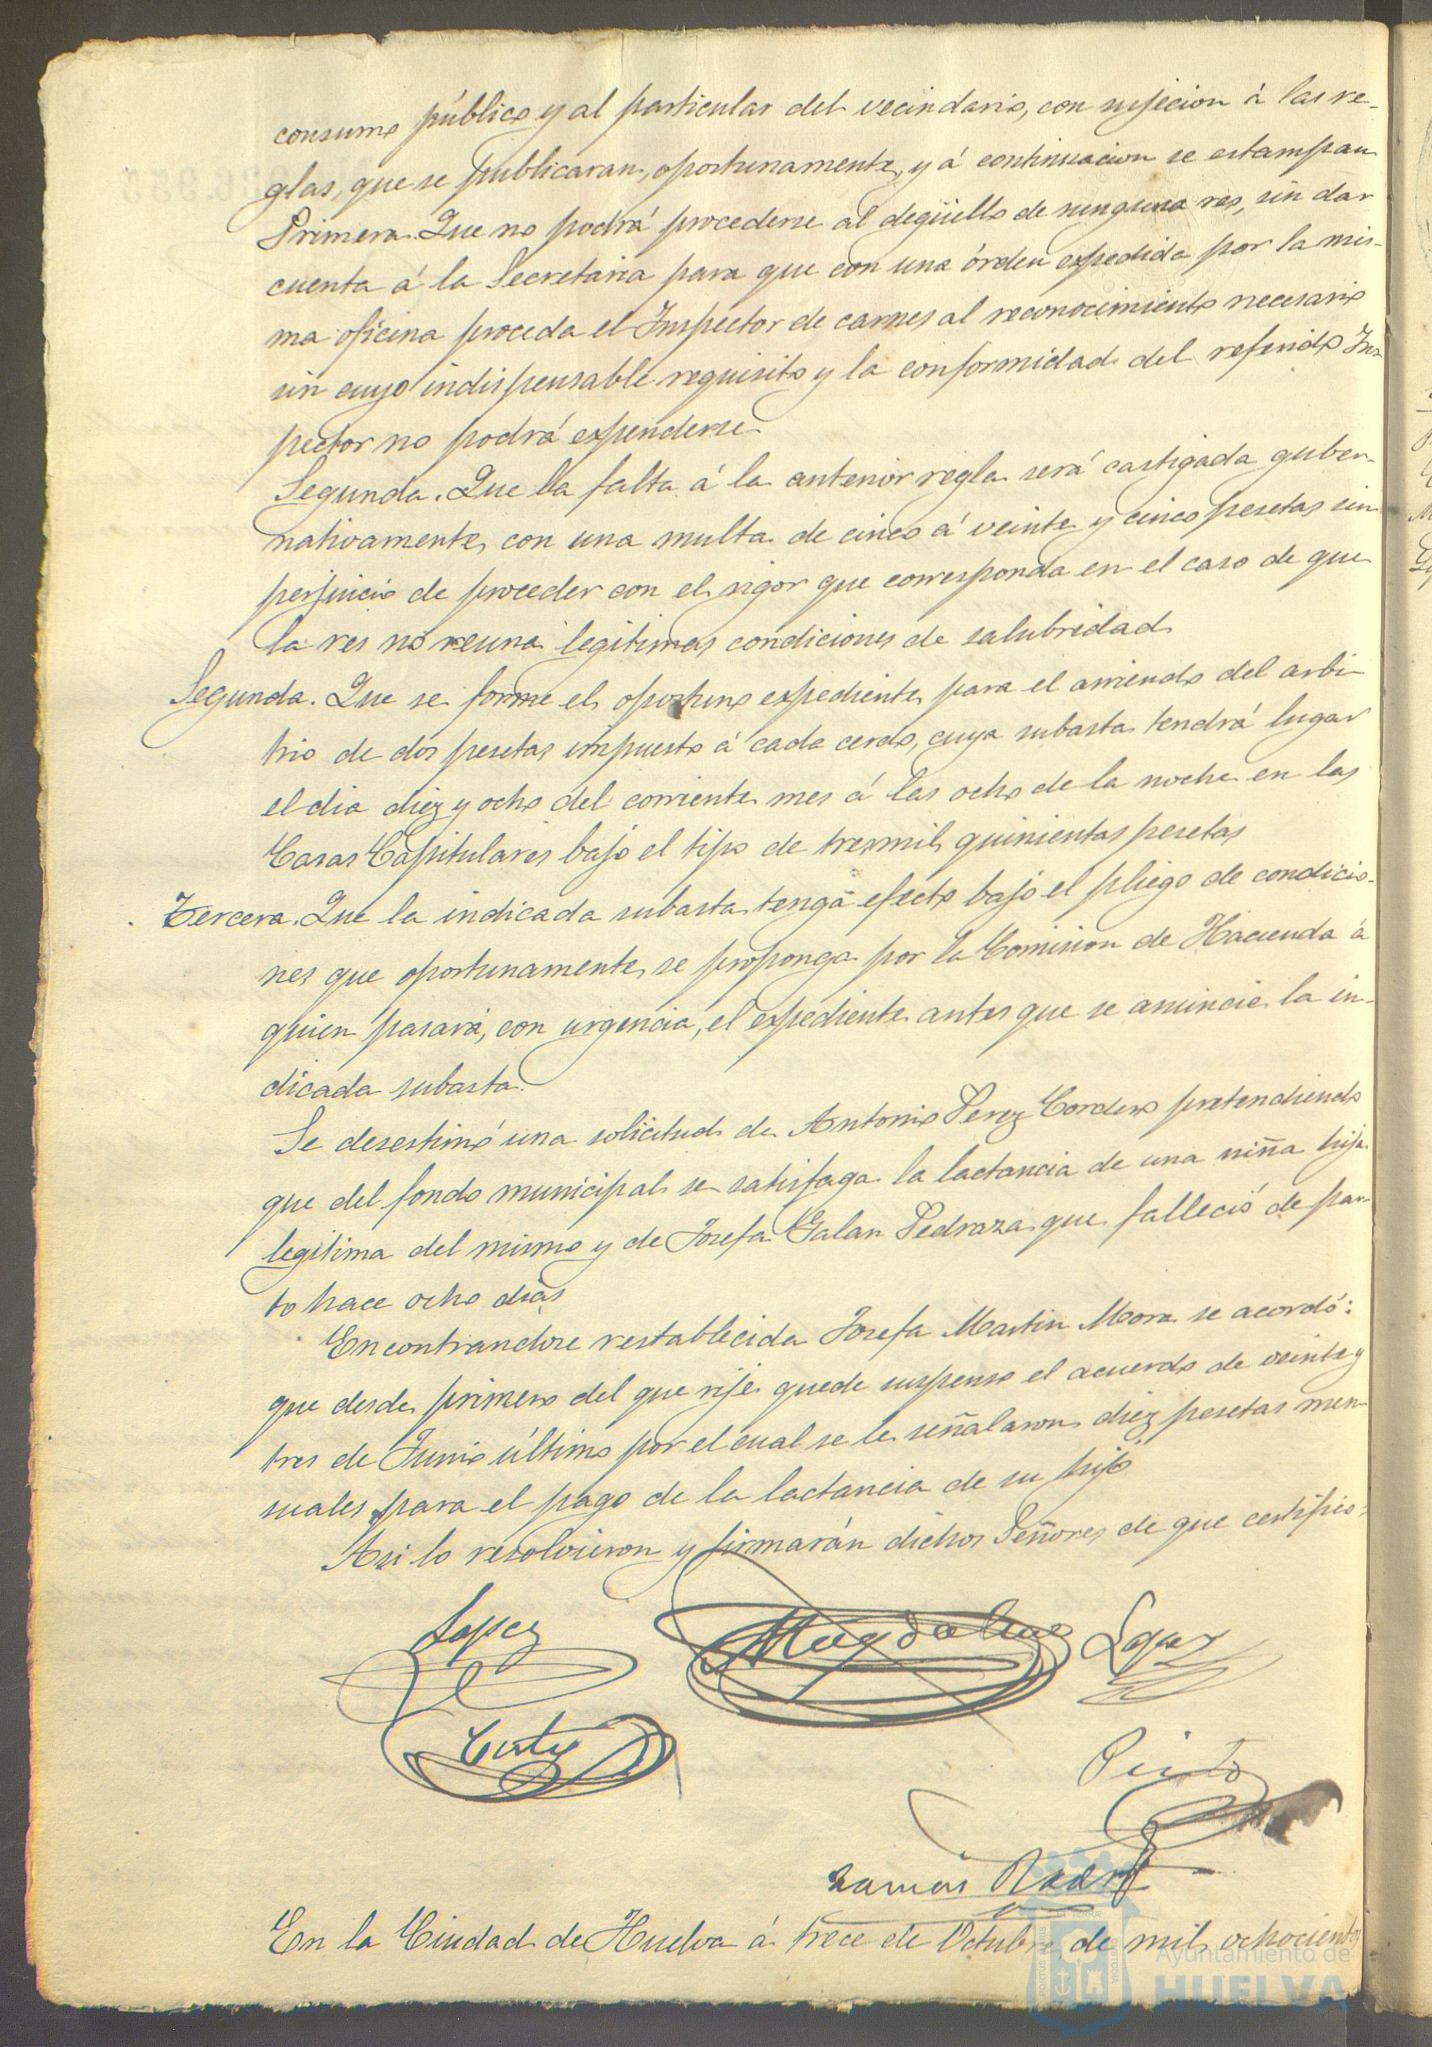 consumo público y al particular del vecindario, con sujecion á las re-
glas, que se publicaran, oportunamente, y á continuacion se estampan
Primera. Que no podrá procederse al degüello de ninguna res, sin dar
cuenta á la Secretaria para que con una órden expedida por la mis-
ma oficina proceda el Inspector de carnes al reconocimiento necesario
sin cuyo indispensable requisito y la conformidad del referido Ins
pector no podrá expenderse
Segunda. Que la falta á la anterior regla será castigada guber-
nativamente, con una multa de cinco á veinte y cinco pesetas sin
perjuicio de proceder con el rigor que corresponda en el caso de que
la res no reuna legitimas condiciones de salubridad
Segunda. Que se forme el oportuno expediente, para el arriendo del arbi-
trio de dos pesetas impuesto á cada cerdo, cuya subasta tendrá lugar
el dia diez y ocho del corriente mes á las ocho de la noche en las
Casas Capitulares bajo el tipo de tresmil quinientas pesetas
Tercera. Que la indicada subasta tenga efecto bajo el pliego de condicio-
nes que oportunamente, se proponga por la Comision de Hacienda á
quien pasará, con urgencia, el expediente antes que se anuncie la in-
dicada subasta.
Se desestimó una solicitud de Antonio Perez Cordero pretendiendo
que del fondo municipal se satisfaga la lactancia de una niña hija
legitima del mismo y de Josefa Galan Pedraza que falleció de par-
to hace ocho dias
Encontrandose restablecida Josefa Martin Mora se acordó:
que desde primero del que rije quede suspenso el acuerdo de veinte y
tres de Junio último por el cual se le señalaron diez pesetas men-
suales para el pago de la lactancia de su hijo
Asi lo resolvieron y firmarán dichos Señores de que certifico.
Lopez
Magdaleno
Lopez
Pinto
Ramón
En la Ciudad de Huelva á trece de Octubre de mil ochocientos
Ayuntamiento de
HUELVA